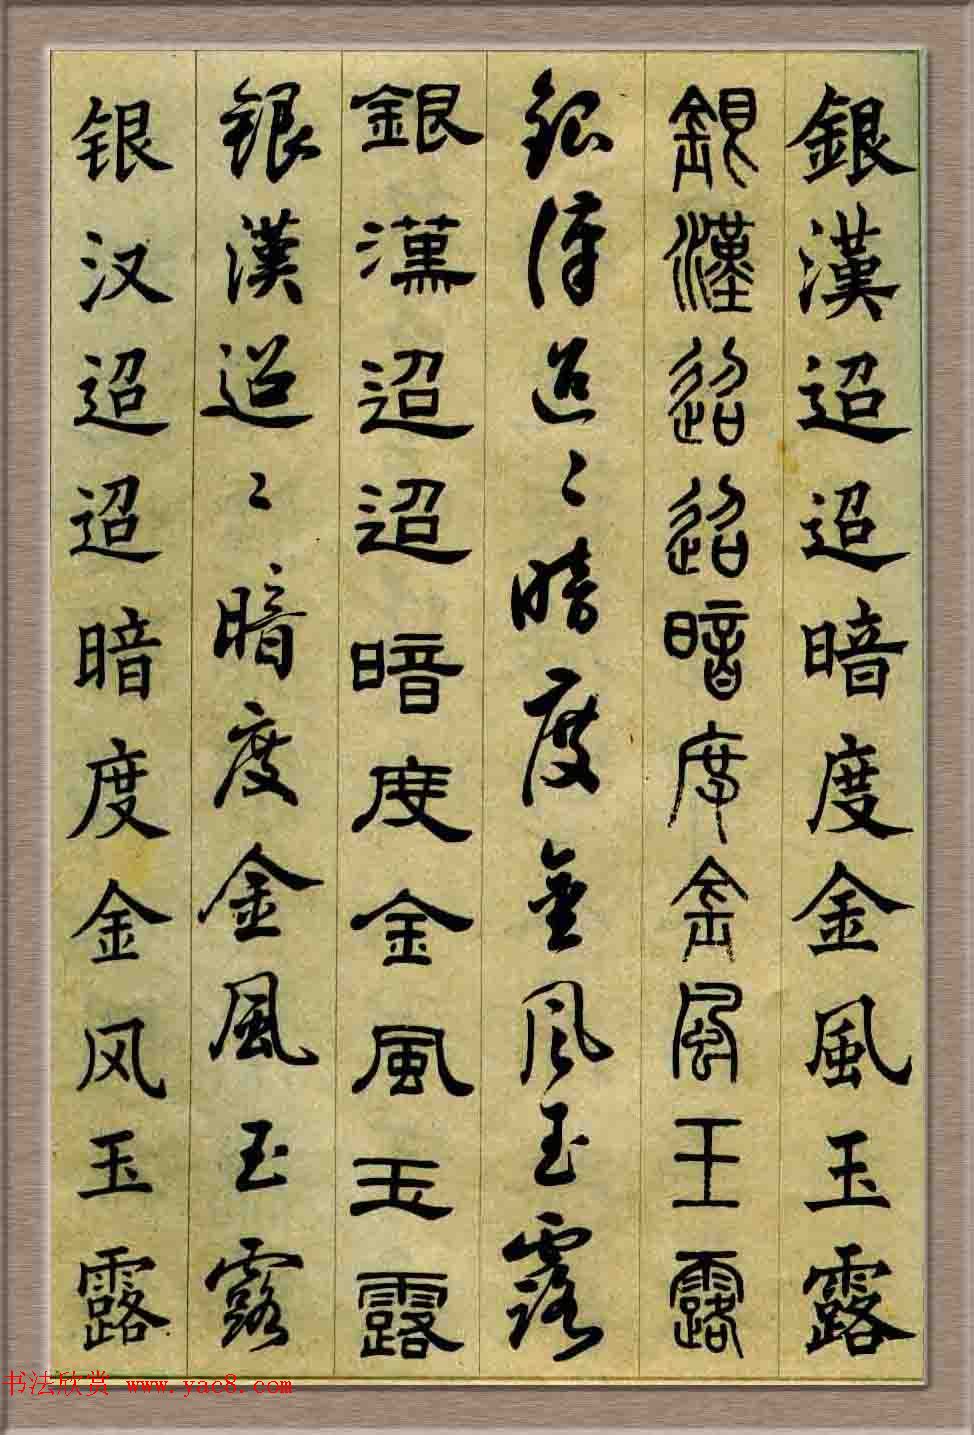 銀漢迢迢暗度金風玉露
銀漢迢迢暗度金風王露
銀漢迢〻暗度金風玉露
銀漢迢迢暗度金風玉露
銀漢迢〻暗度金風玉露
银汉迢迢暗度金风玉露
书法欣赏 www.yac8.com